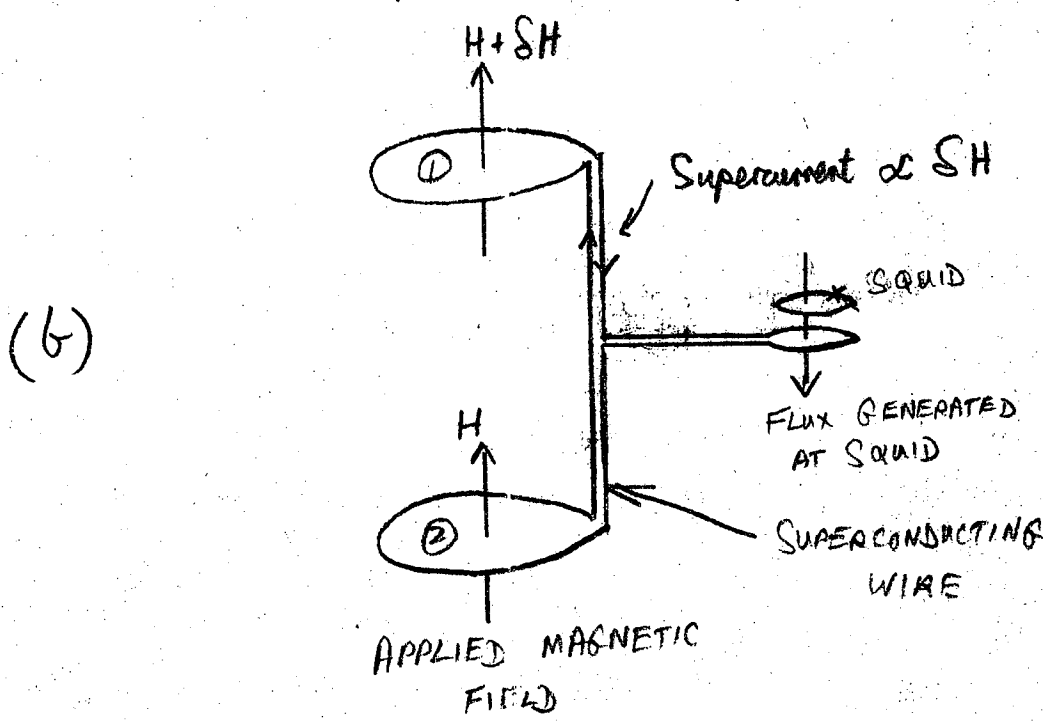 H + δH
①
Supercurrent ∝ δH
SQUID
(b)
FLUX GENERATED
AT SQUID
H
②
SUPERCONDUCTING
WIRE
APPLIED MAGNETIC
FIELD